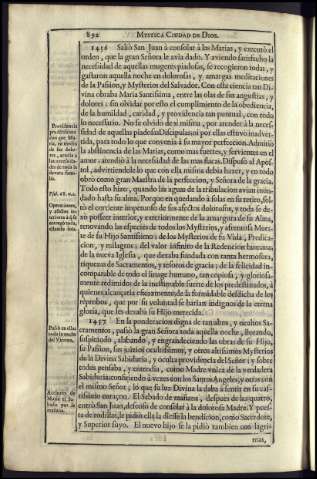 892 MYSTICA CIUDAD DE DIOS.
1456 Saliò San Juan à consolar à las Marias, y executò el
orden, que la gran Señora le avia dado. Y aviendo satisfecho la
necessidad de aquellas mugeres piadosas, se recogieron todas, y
gastaron aquella noche en dolorosas, y amargas meditaciones
de la Passion, y Mysterios del Salvador. Con esta ciencia tan Di-
vina obraba Maria Santissima, entre las olas de sus angustias, y
dolores: sin olvidar por esto el cumplimiento de la obediencia,
de la humildad, caridad, y providencia tan puntual, con todo
lo necessario. No se olvidò de si misma, por atender à la neces-
sidad de aquellas piadosas Discipulas; ni por ellas estuvo inadver-
tida, para todo lo que convenia à su mayor perfeccion. Admitiò
la abstinencia de las Marias, como mas fuertes, y servientes en el
amor: atendiò à la necessidad de las mas flacas. Dispuso al Apos-
tol, advirtiendole lo que con ella misma debia hazer, y en todo
obrò como gran Maestra de la perfeccion, y Señora de la gracia.
Todo esto hizo, quando las aguas de la tribulacion avian inun-
dado hasta su alma. Porque en quedando à solas en su retiro, sol-
tò el corriente impetuoso de sus afectos dolorosos, y toda se de-
xò posseer interior, y exteriormente de la amargura de su Alma,
renovando las especies de todos los Mysterios, y afrentosa Muer-
te de su Hijo Santissimo; de los Mysterios de su Vida, Predica-
cion, y milagros; del valor infinito de la Redencion humana;
de la nueva Iglesia, que dexaba fundada con tanta hermosura,
riquezas de Sacramentos, y tesoros de gracia; de la felicidad in-
comparable de todo el linage humano, tan copiosa, y gloriosa-
mente redimido; de la inestimable suerte de los predestinados, à
quienes alcançaria eficazmente; de la formidable desdicha de los
reprobos, que por su voluntad se harian indignos de la eterna
gloria, que les dexaba su Hijo merecida.
1457 En la ponderacion digna de tan altos, y ocultos Sa-
cramentos, passò la gran Señora toda aquella noche, llorando,
suspirando, alabando, y engrandeciendo las obras de su Hijo,
su Passion, sus juizios ocultissimos, y otros altissimos Mysterios
de la Divina Sabiduria, y oculta providencia del Señor; y sobre
todos pensaba, y entendia, como Madre unica de la verdadera
Sabiduria: confiriendo à vezes con los Santos Angeles, y otras con
el mismo Señor, lo que su luz Divina la daba à sentir en su cas-
tissimo coraçon. El Sabado de mañana, despues de las quatro,
entrò San Juan, desseoso de consolar à la dolorosa Madre. Y pues-
ta de rodillas, le pidiò ella la diesse la bendicion, como Sacerdote,
y Superior suyo. El nuevo hijo se la pidiò tambien con lagri-
mas,
Psal. 68. v. 2.